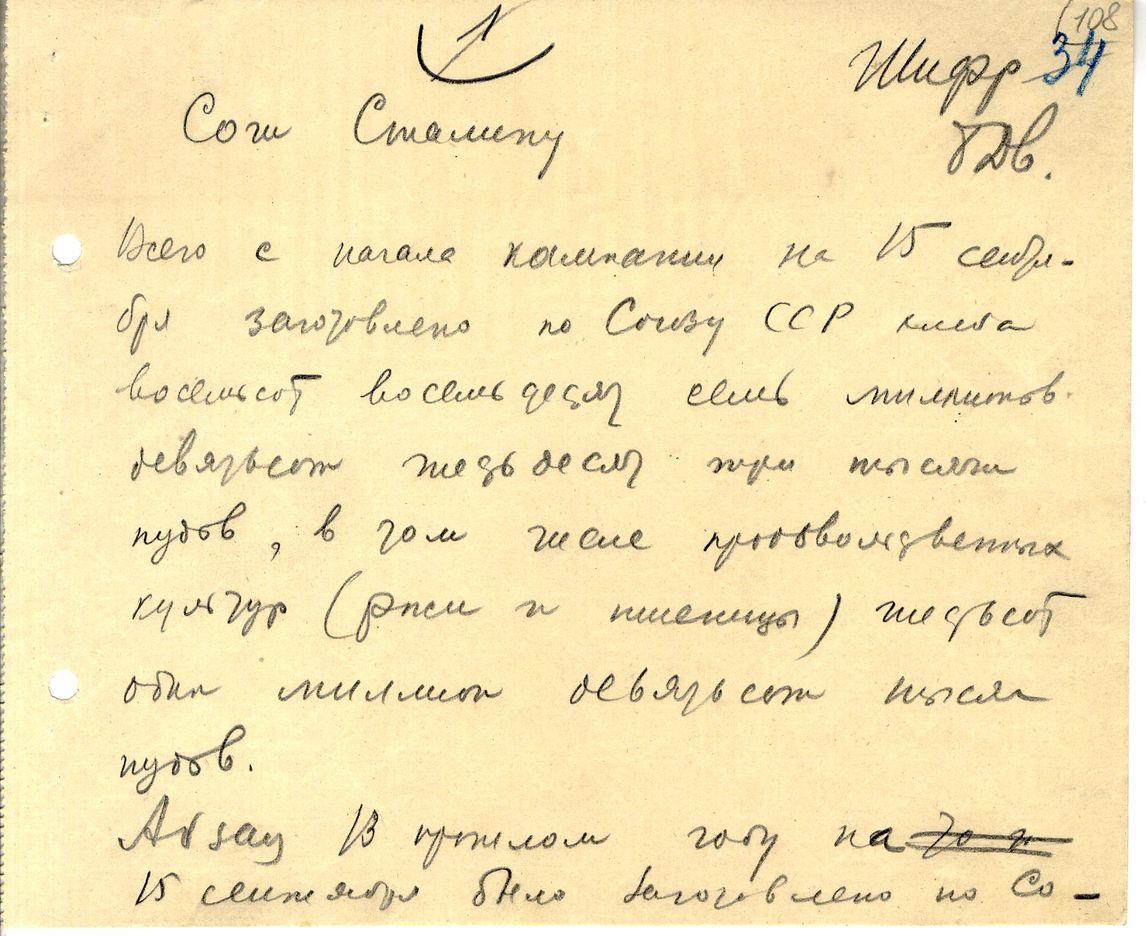 108
Шифр 34
Сочи Сталину
Всего с начала кампании на 15 сентя-
бря заготовлено по Союзу ССР хлеба
восемьсот восемьдесят семь миллионов
девятьсот шестьдесят три тысячи
пудов, в том числе продовольственных
культур (ржи и пшеницы) шестьсот
один миллион девятьсот тысяч
пудов.
Абзац В прошлом году на
15 сентября было заготовлено по Со-